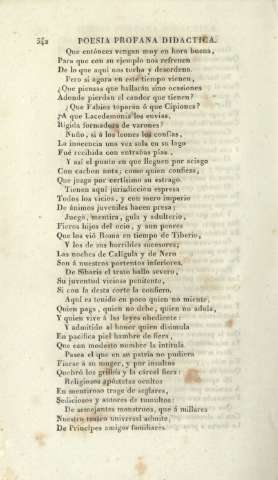 342 POESIA PROFANA DIDACTICA.
Que entónces vengan muy en hora buena,
Para que con su ejemplo nos refrenen
De lo que aquí nos turba y desordena.
Pero si agora en este tiempo vienen,
¿Que piensas que hallarán sino ocasiones
Adonde pierdan el candor que tienen?
¿Que Fabios toparán ó que Cipiones?
¿A que Lacedemonia los envias,
Rígida formadora de varones?
Nuño, si á los leones los confias,
La inocencia una vez sola en su lago
Fué recibida con entrañas pias.
Y así el punto en que lleguen por aciago
Con carbon nota; como quien confiesa,
Que juzga por certísimo su estrago.
Tienen aquí jurisdiccion espresa
Todos los vicios, y con mero imperio
De ánimos juveniles hacen presa:
Juego, mentira, gula y adulterio,
Fieros hijos del ocio, y aun peores
Que los vió Roma en tiempo de Tiberio,
Y los de sus horribles sucesores;
Las noches de Calígula y de Nero
Son á nuestros portentos inferiores.
De Síbaris el trato hallo severo,
Su juventud viciosa penitente,
Si con la desta corte la confiero.
Aquí es tenido en poco quien no miente,
Quien paga, quien no debe, quien no adula,
Y quien vive á las leyes obediente:
Y admitido al honor quien disimula
En pacífica piel hambre de fiera,
Que con modesto nombre la intitula.
Pasea el que en su patria no pudiera
Fiarse á su muger, y por insultos
Quebró los grillos y la cárcel fiera:
Religiosos apóstatas ocultos
En mentiroso trage de seglares,
Sediciosos y autores de tumultos:
De semejantes monstruos, que á millares
Nuestro teatro universal admite,
De Príncipes amigos familiares.